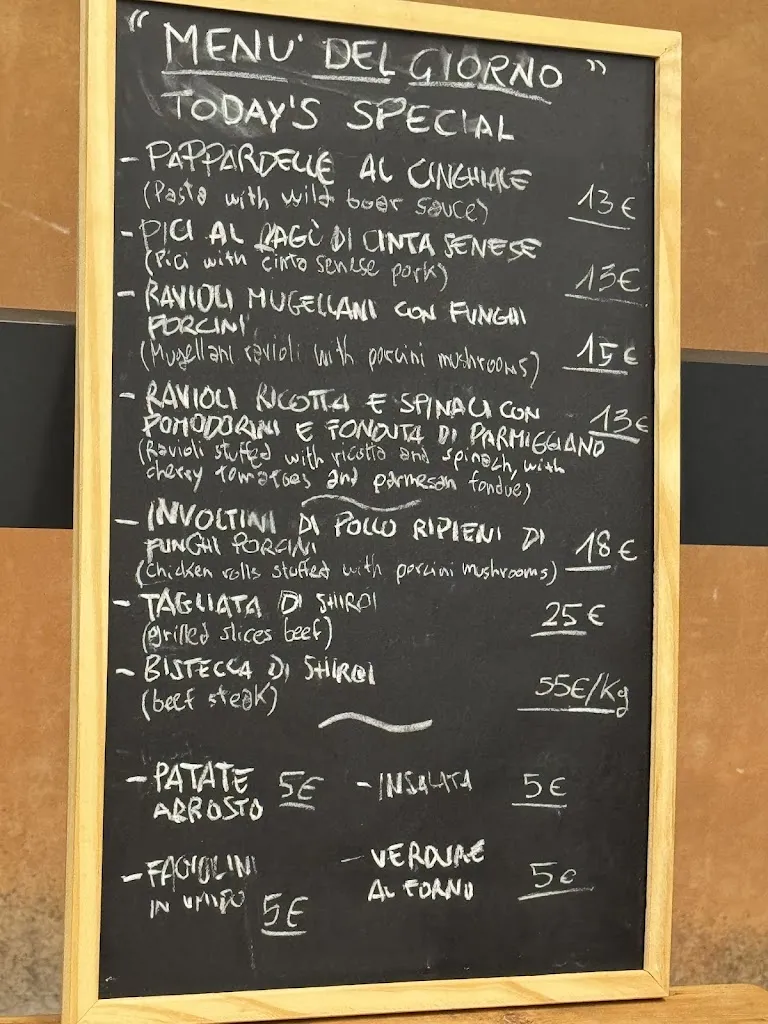 " MENU' DEL GIORNO "
TODAY'S SPECIAL
- PAPPARDELLE AL CINGHIALE
(Pasta with wild boar sauce) 13€
- PICI AL RAGÙ DI CINTA SENESE
(Pici with cinta senese pork) 13€
- RAVIOLI MUGELLANI CON FUNGHI
PORCINI
(Mugellani ravioli with porcini mushrooms) 15€
- RAVIOLI RICOTTA E SPINACI CON 13€
POMODORINI E FONDUTA DI PARMIGGIANO
(Ravioli stuffed with ricotta and spinach, with
cherry tomatoes and parmesan fondue)
- INVOLTINI DI POLLO RIPIENI DI
FUNGHI PORCINI 18€
(Chicken rolls stuffed with porcini mushrooms)
- TAGLIATA DI SHIROI 25€
(grilled slices beef)
- BISTECCA DI SHIROI
(beef steak) 55€/Kg
- PATATE 5€ - INSALATA 5€
ARROSTO
- FAGIOLINI - VERDURE
IN UMIDO 5€ AL FORNO 5€